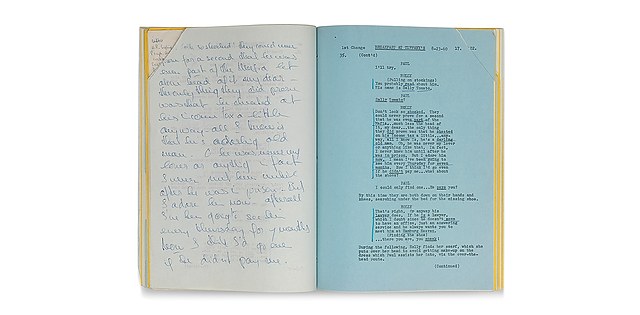 so shocked! They could never
prove for a second that he was
even part of the Mafia let
alone head of it my dear —
the only thing they did prove
was that he cheated at
his income tax a little
anyway all I know is
that he's a darling old
man. O he was never my
lover or anything in fact
I never
after he was in prison — but
I adore him now — after all
I've been going to see him
every Thursday for 7 months
now I think I'd go on
if he didn't pay me.
1st Change BREAKFAST AT TIFFANY'S 8-23-60
(Cont'd)
PAUL
I'll try.
HOLLY
(Pulling on stockings)
You probably read about him.
His name is Sally Tomato.
PAUL
Sally Tomato?
HOLLY
Don't look so shocked. They
could never prove for a second
that he was even part of the
Mafia...much less the head of
it, my dear...the only thing
they did prove was that he cheated
on his income tax a little...any-
way, all I know is, he's a darling
old man. Oh, he was never my lover
or anything like that. In fact,
I never knew him until after he
was in prison. But I adore him
now. I mean I've been going to
see him every Thursday for seven
months. Now I think I'd go even
if he didn't pay me...what about
the shoes?
PAUL
I could only find one...Do more you?
By this time they are both down on their hands and
knees, searching under the bed for the missing shoe.
HOLLY
That's right. Or anyway his
lawyer does. If he is a lawyer,
which I doubt since he doesn't seem
to have an office, just an answering
service and he always wants to
meet him at Hamburg Heaven.
(Finding the shoe)
...there you are, you sneak!
During the following, Holly finds her scarf, which she
puts over her head to avoid getting make-up on the
dress which Paul assists her into, via the over-the-
head route.
(Continued)